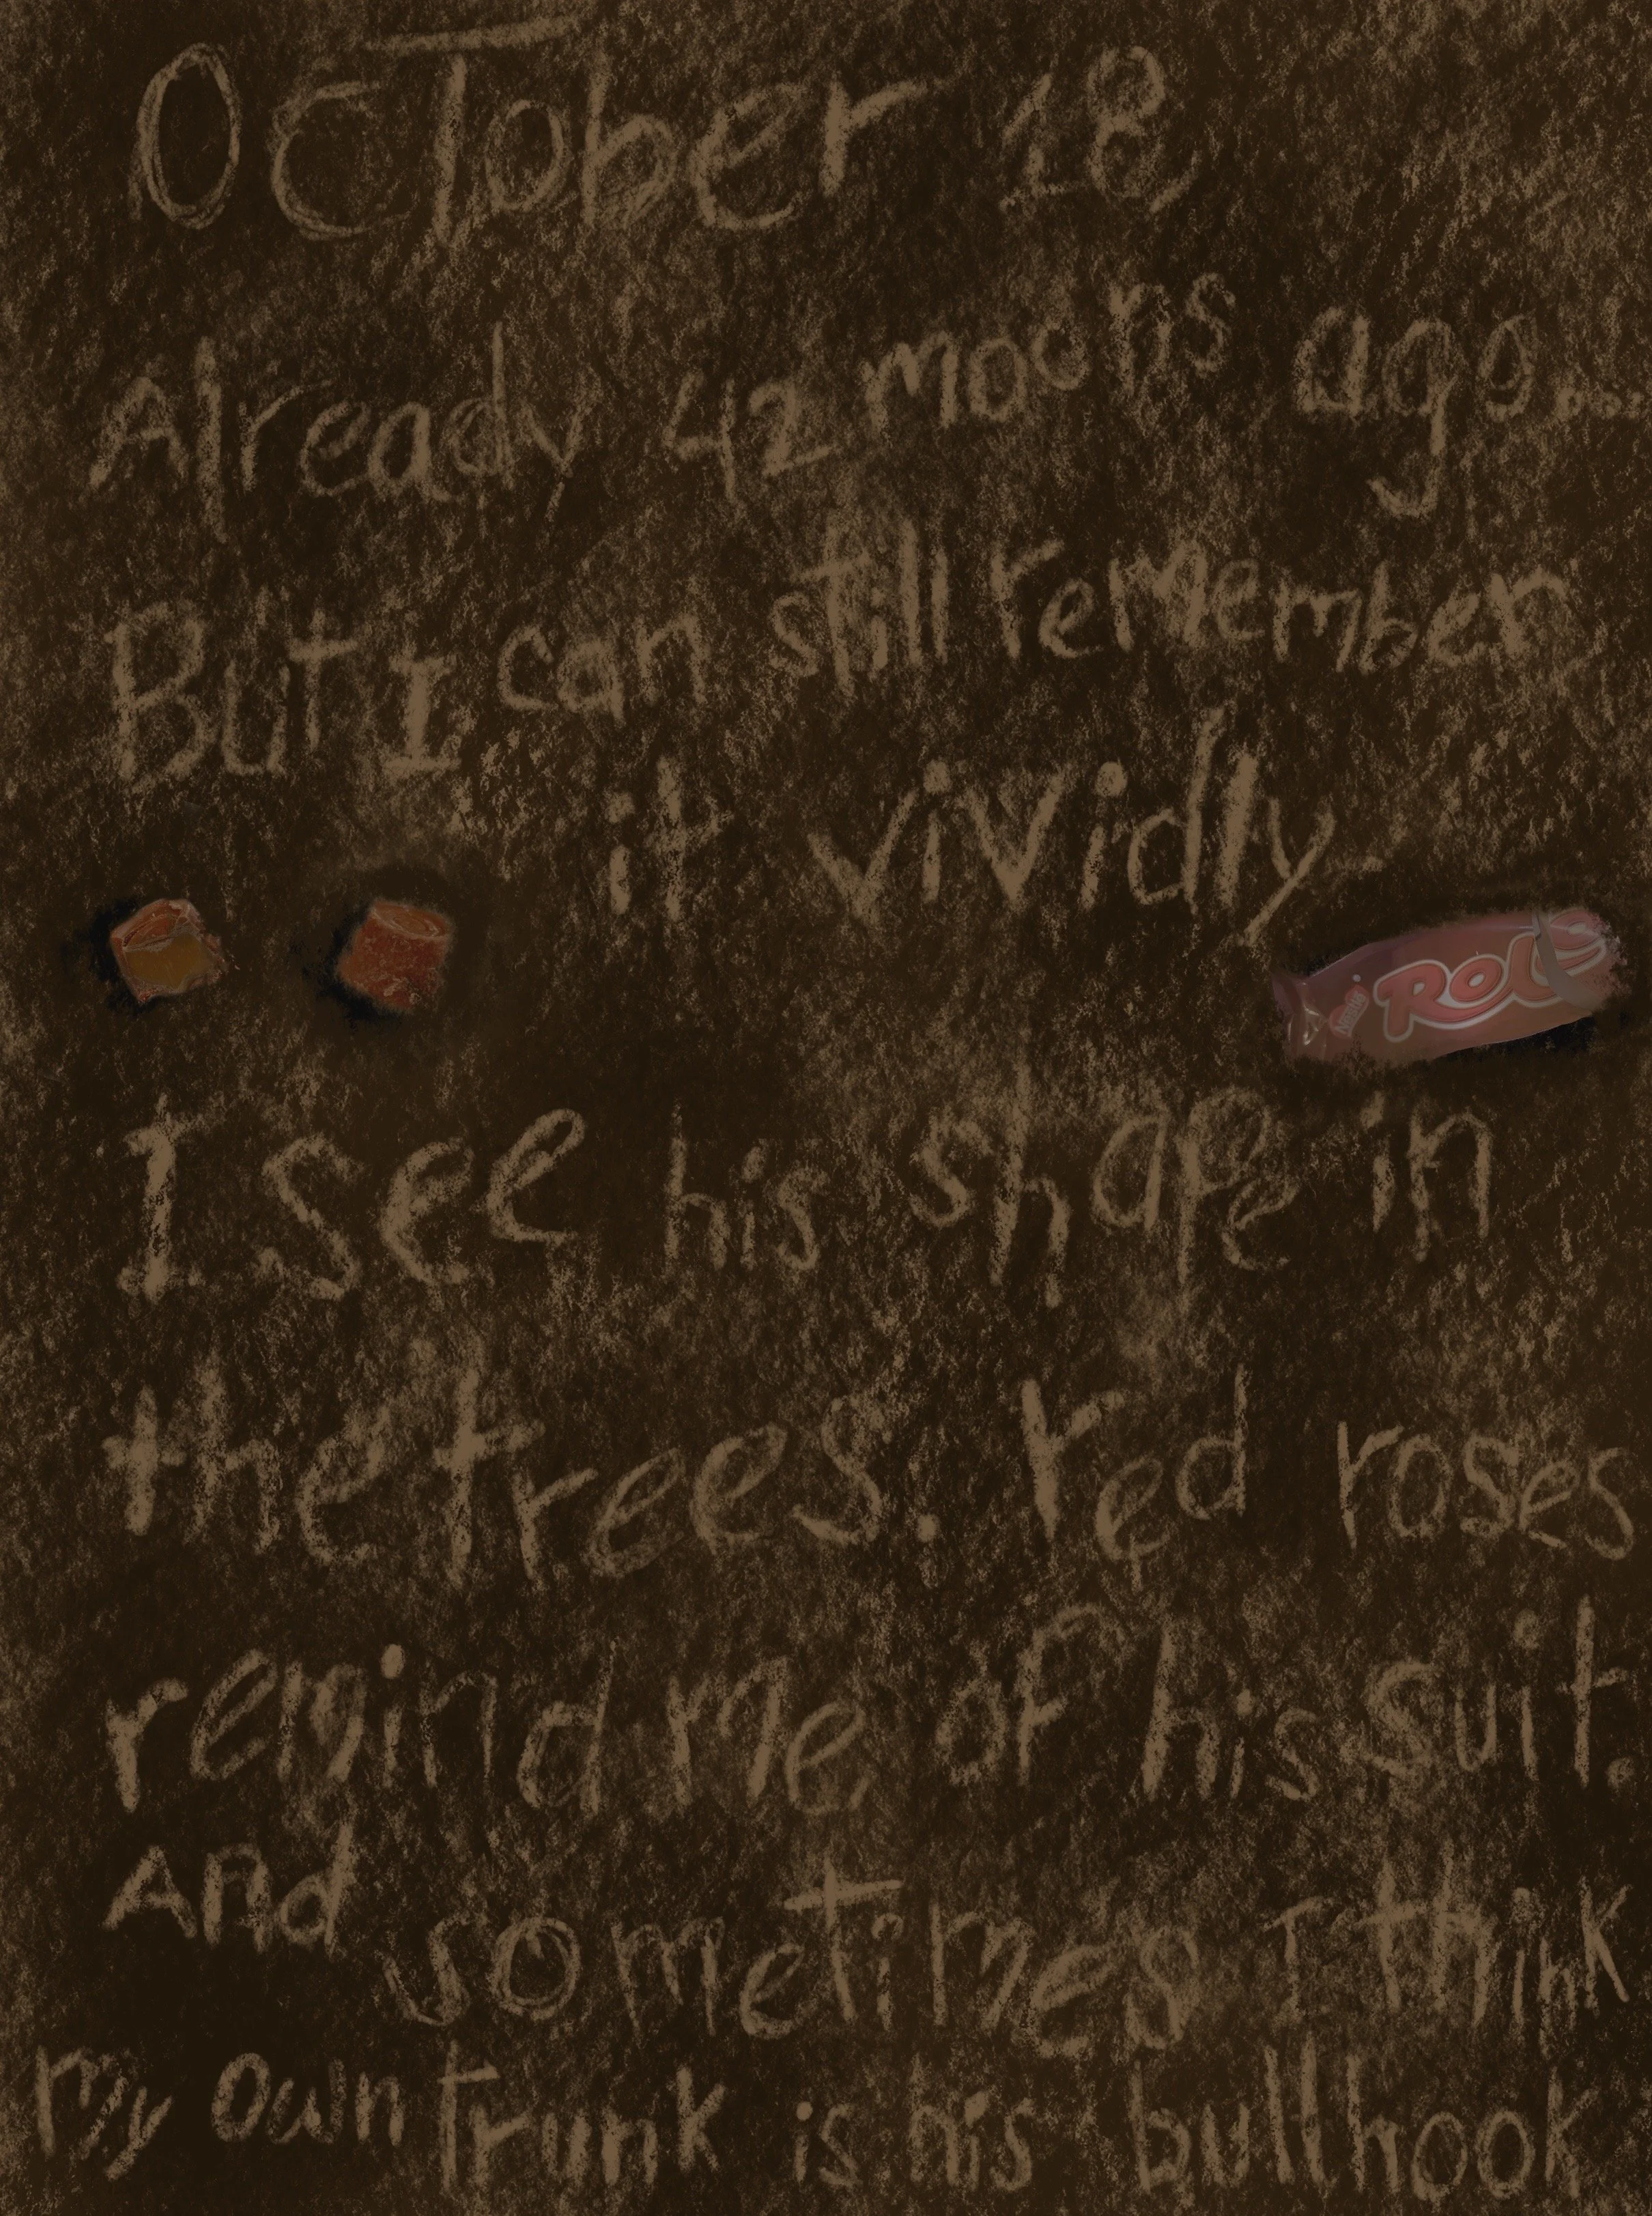 OCTober 18
Already 42 moons ago...
But I can still remember
it vividly
Nestlé
Rolo
I see his shape in
the trees. red roses
remind me of his suit.
And sometimes I think
my own trunk is his bullhook